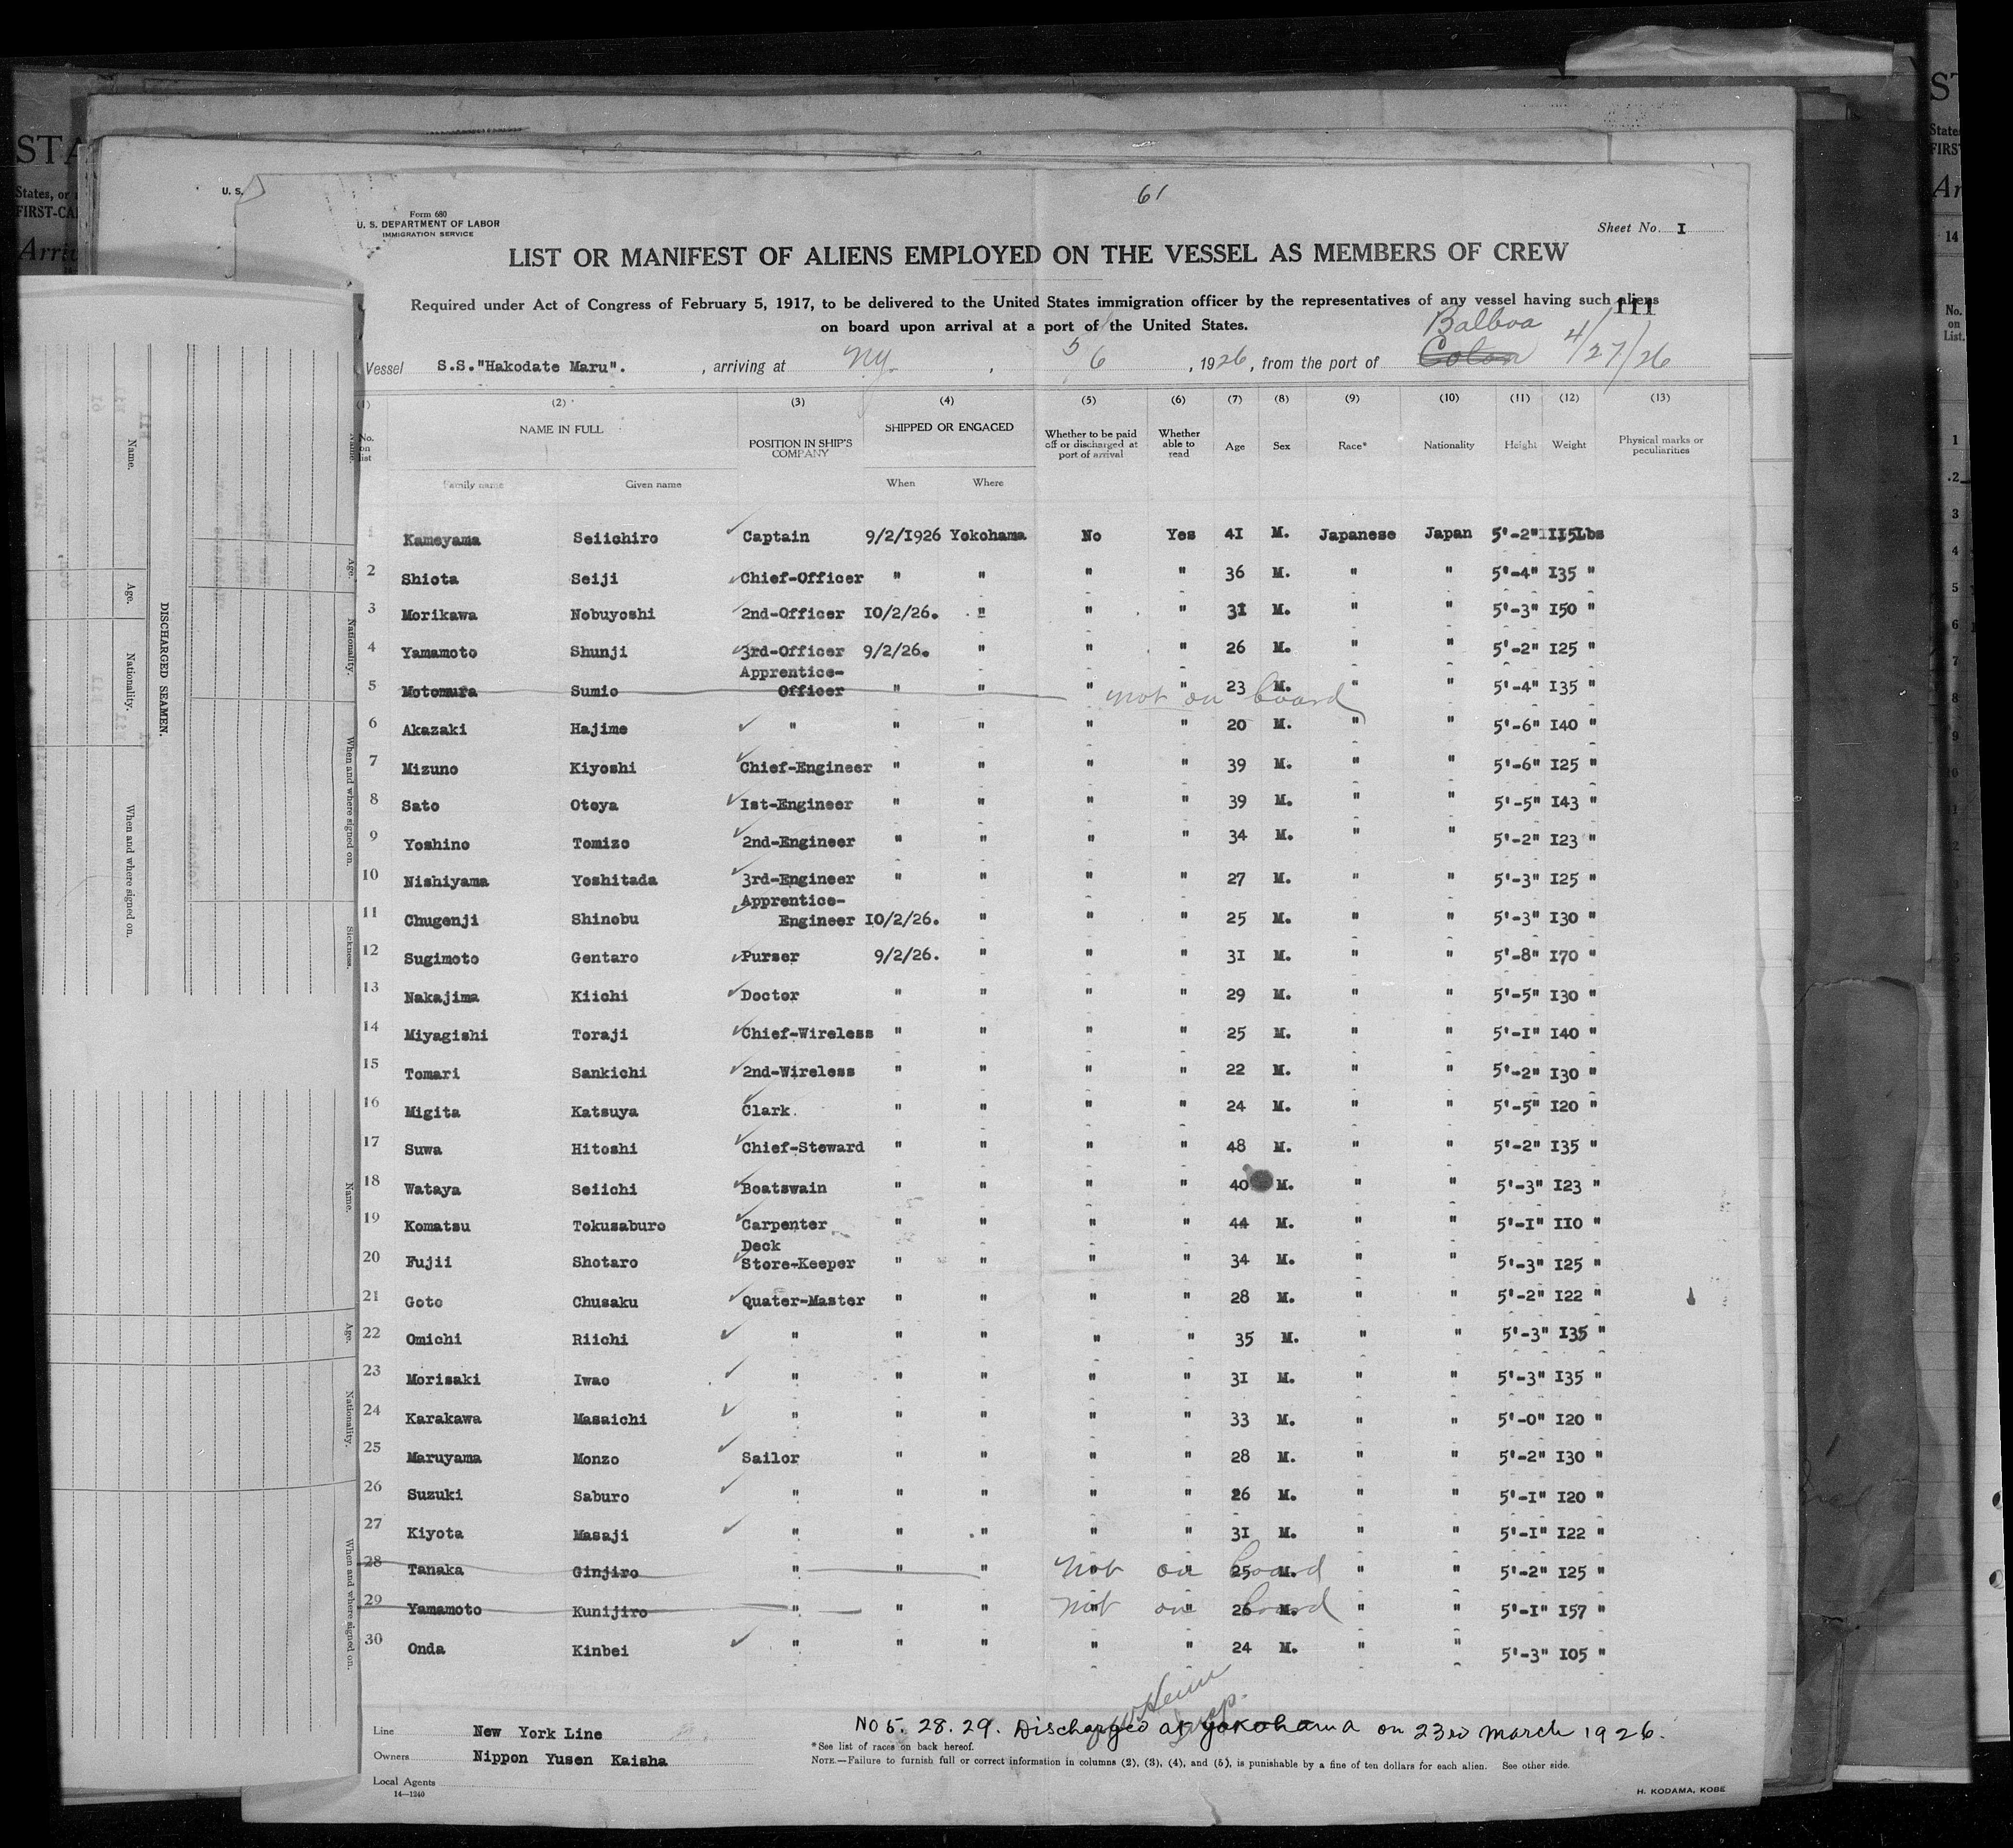 61
U. S.
Form 680
U. S. DEPARTMENT OF LABOR
IMMIGRATION SERVICE
Sheet No. I
LIST OR MANIFEST OF ALIENS EMPLOYED ON THE VESSEL AS MEMBERS OF CREW
Required under Act of Congress of February 5, 1917, to be delivered to the United States immigration officer by the representatives of any vessel having such aliens
111
on board upon arrival at a port of the United States.
Balboa
Vessel S.S."Hakodate Maru". , arriving at NY. , 5/6 , 1926, from the port of Colon 4/27/26
(1) (2) (3) (4) (5) (6) (7) (8) (9) (10) (11) (12) (13)
No. on list NAME IN FULL POSITION IN SHIP'S COMPANY SHIPPED OR ENGAGED Whether to be paid off or discharged at port of arrival Whether able to read Age Sex Race* Nationality Height Weight Physical marks or peculiarities
Family name Given name When Where
1 Kameyama Seiichiro Captain 9/2/1926 Yokohama No Yes 41 M. Japanese Japan 5'-2" 115Lbs
2 Shiota Seiji Chief-Officer " " " " 36 M. " " 5'-4" 135 "
3 Morikawa Nobuyoshi 2nd-Officer 10/2/26. " " " 31 M. " " 5'-3" 150 "
4 Yamamoto Shunji 3rd-Officer 9/2/26. " " " 26 M. " " 5'-2" 125 "
5 Motomura Sumio Apprentice-Officer " " " " 23 M. " " 5'-4" 135 "
not on board
6 Akazaki Hajime " " " " " 20 M. " " 5'-6" 140 "
7 Mizuno Kiyoshi Chief-Engineer " " " " 39 M. " " 5'-6" 125 "
8 Sato Otoya 1st-Engineer " " " " 39 M. " " 5'-5" 143 "
9 Yoshino Tomizo 2nd-Engineer " " " " 34 M. " " 5'-2" 123 "
10 Nishiyama Yoshitada 3rd-Engineer " " " " 27 M. " " 5'-3" 125 "
11 Chugenji Shinobu Apprentice-Engineer 10/2/26. " " " 25 M. " " 5'-3" 130 "
12 Sugimoto Gentaro Purser 9/2/26. " " " 31 M. " " 5'-8" 170 "
13 Nakajima Kiichi Doctor " " " " 29 M. " " 5'-5" 130 "
14 Miyagishi Toraji Chief-Wireless " " " " 25 M. " " 5'-1" 140 "
15 Tomari Sankichi 2nd-Wireless " " " " 22 M. " " 5'-2" 130 "
16 Migita Katsuya Clark. " " " " 24 M. " " 5'-5" 120 "
17 Suwa Hitoshi Chief-Steward " " " " 48 M. " " 5'-2" 135 "
18 Wataya Seiichi Boatswain " " " " 40 M. " " 5'-3" 123 "
19 Komatsu Tokusaburo Carpenter " " " " 44 M. " " 5'-1" 110 "
20 Fujii Shotaro Deck Store-Keeper " " " " 34 M. " " 5'-3" 125 "
21 Goto Chusaku Quater-Master " " " " 28 M. " " 5'-2" 122 "
22 Omichi Riichi " " " " " 35 M. " " 5'-3" 135 "
23 Morisaki Iwao " " " " " 31 M. " " 5'-3" 135 "
24 Karakawa Masaichi " " " " " 33 M. " " 5'-0" 120 "
25 Maruyama Monzo Sailor " " " " 28 M. " " 5'-2" 130 "
26 Suzuki Saburo " " " " " 26 M. " " 5'-1" 120 "
27 Kiyota Masaji " " " " " 31 M. " " 5'-1" 122 "
28 Tanaka Ginjiro " " " " " 25 M. " " 5'-2" 125 "
not on board
29 Yamamoto Kunijiro " " " " " 26 M. " " 5'-1" 157 "
not on board
30 Onda Kinbei " " " " " 24 M. " " 5'-3" 105 "
Line New York Line
No 5. 28. 29. Discharged at Yokohama on 23rd March 1926.
*See list of races on back hereof.
Owners Nippon Yusen Kaisha
NOTE.—Failure to furnish full or correct information in columns (2), (3), (4), and (5), is punishable by a fine of ten dollars for each alien. See other side.
Local Agents
14—1240
H. KODAMA, KOBE
DISCHARGED SEAMEN.
Name. Age. Nationality. When and where signed on.
Age. Nationality. When and where signed on. Sickness.
Name. Age. Nationality. When and where signed on.